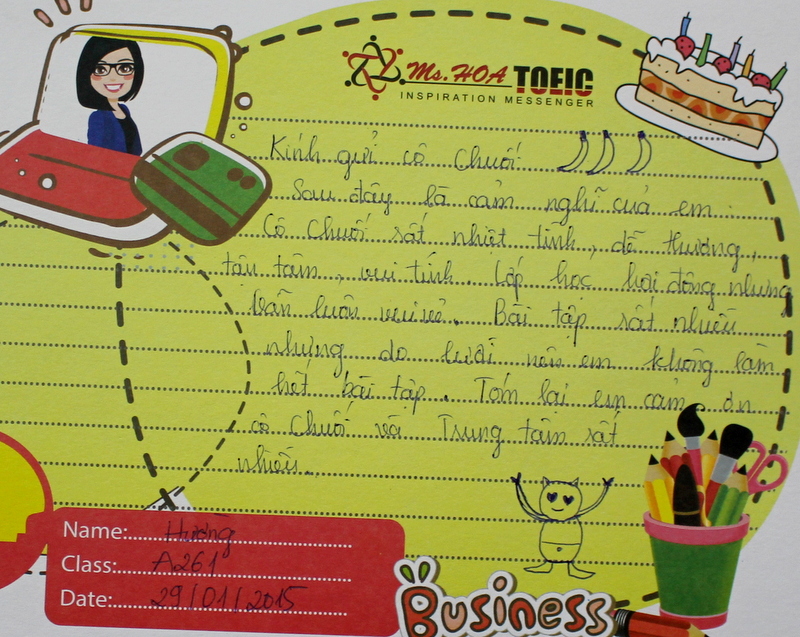 Ms. HOA TOEIC
INSPIRATION MESSENGER
Kính gửi cô Chuối
Sau đây là cảm nghĩ của em.
Cô Chuối rất nhiệt tình, dễ thương,
tận tâm, vui tính. Lớp học hơi đông nhưng
vẫn luôn vui vẻ. Bài tập rất nhiều
nhưng do lười nên em không làm
hết bài tập. Tóm lại em cảm ơn
cô Chuối và Trung tâm rất
nhiều...
Name: Hường
Class: A261
Date: 29/01/2015
Business